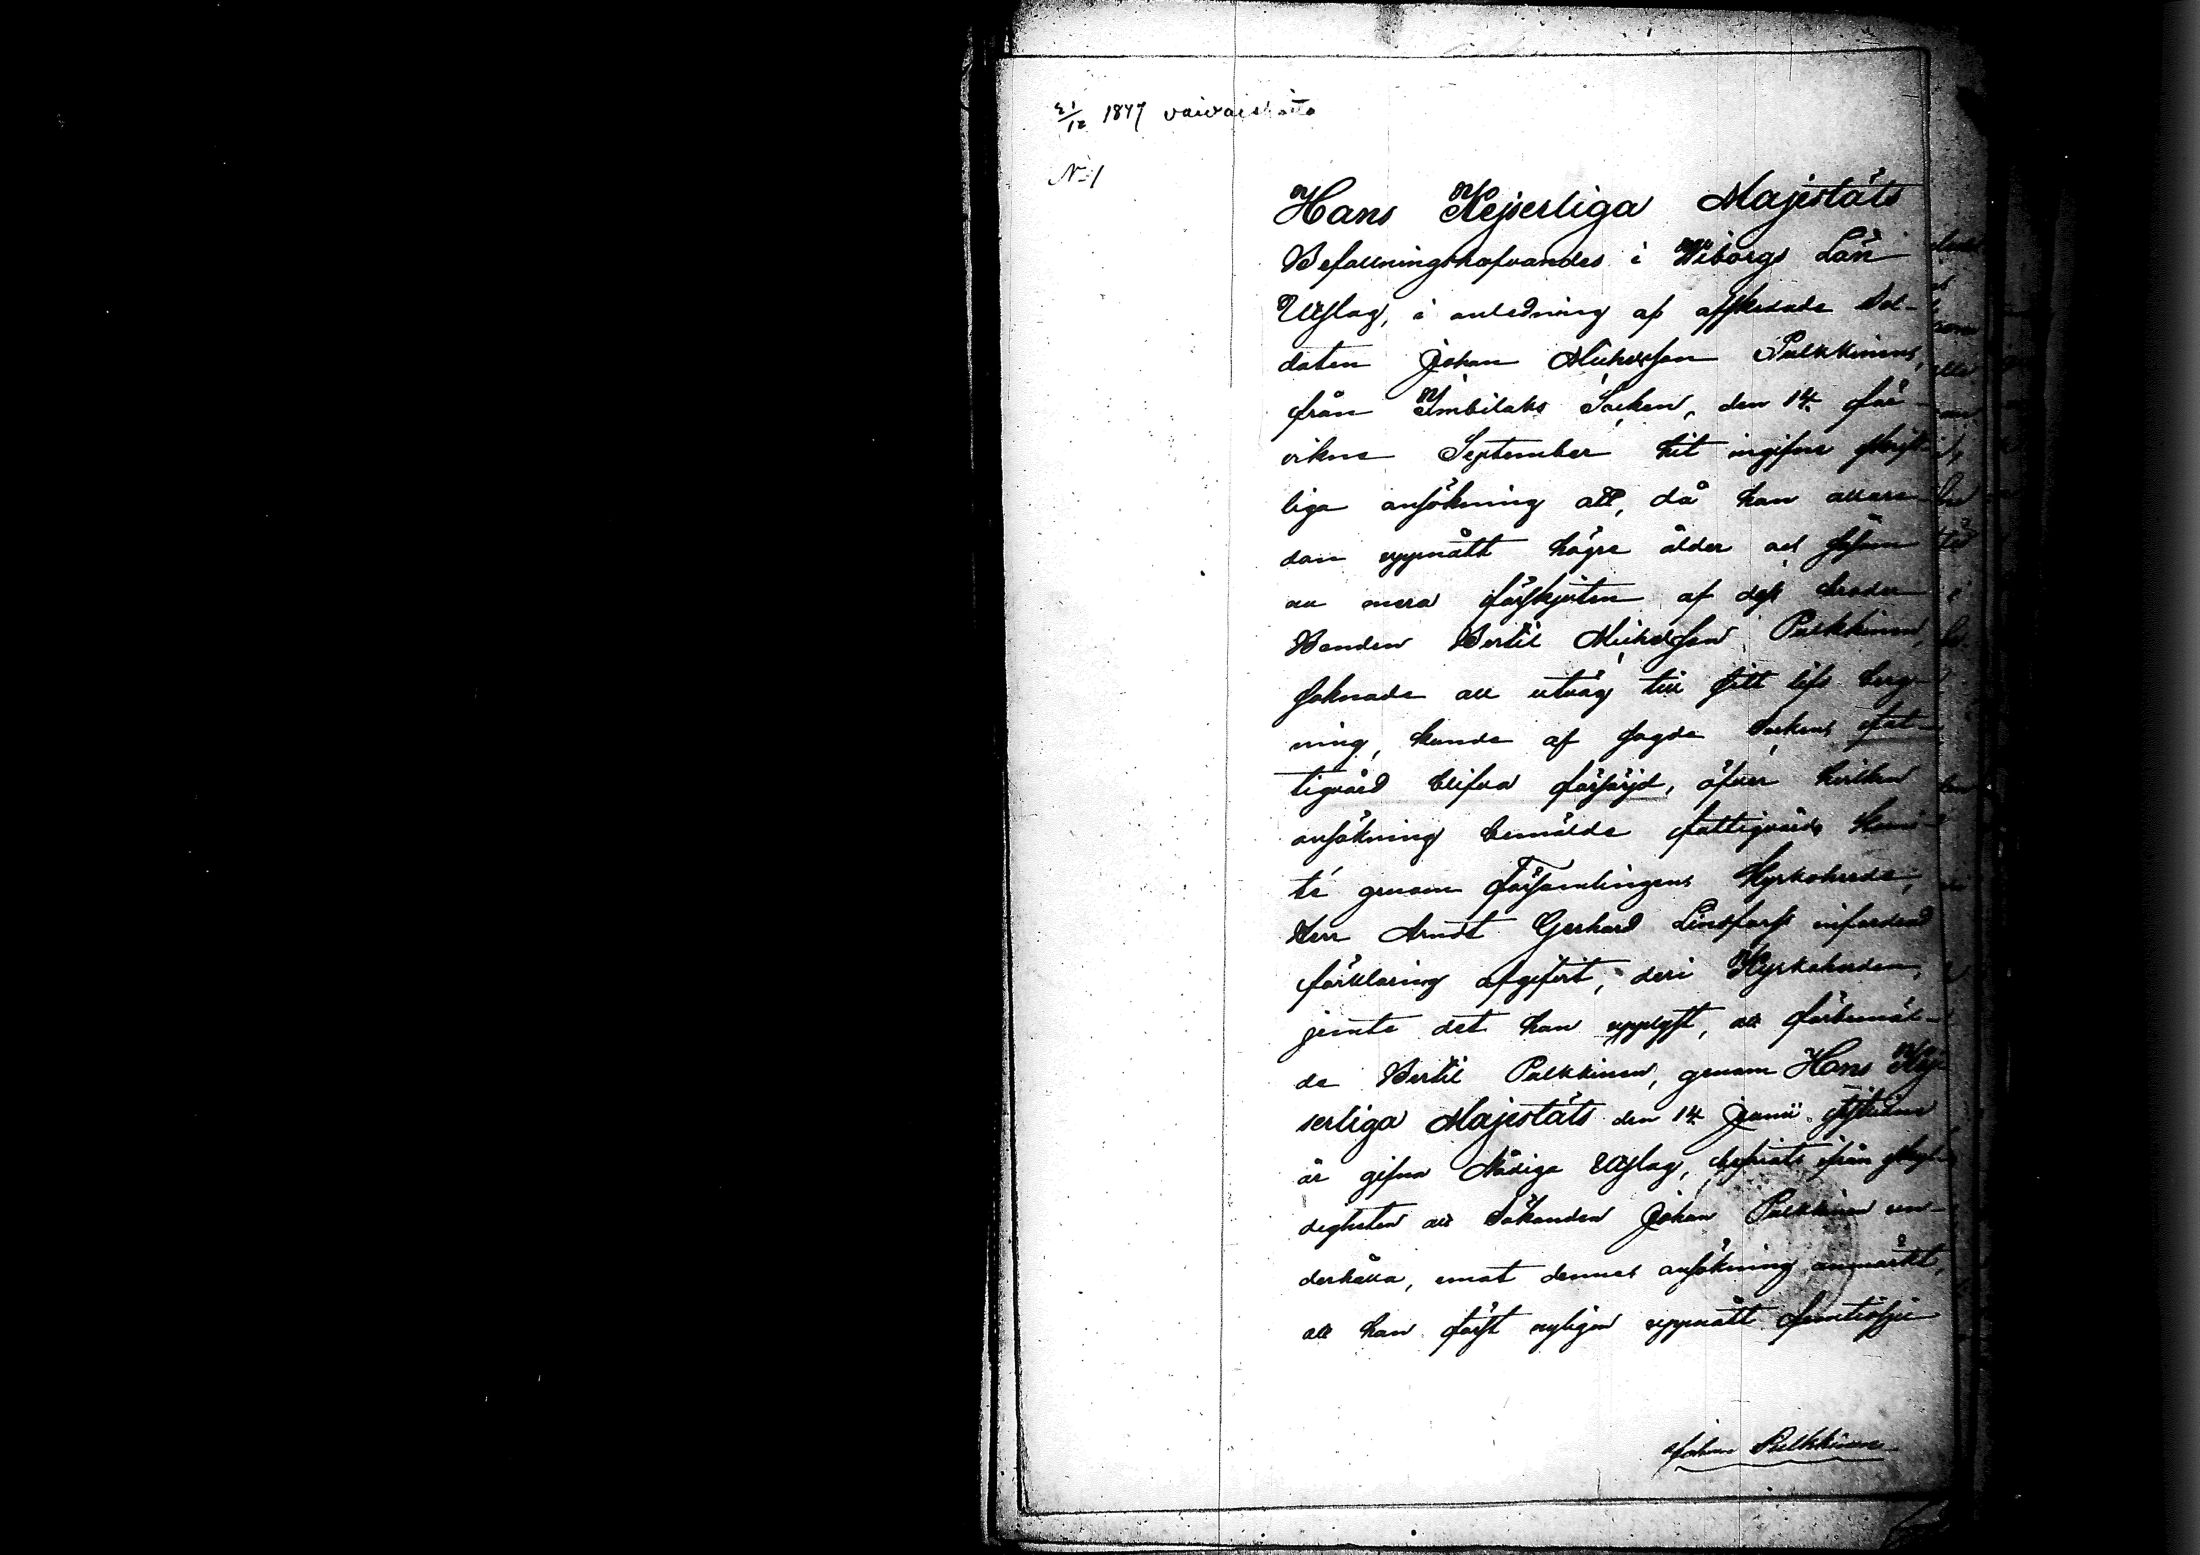 21/12 1847 vaivaishoito
N:1
Hans Kejserliga Majestäts
Befallningshafvandes i Wiborgs Län
Utslag, i anledning af afskedade Sol-
daten Johan Michelsson Pulkkinens,
från Imbilaks Socken, den 14 för-
vikne September hit ingifne skrift-
liga ansökning att, då han allare-
dan uppnått högre ålder och
nu mera förskjuten af dess broder
Bonden Bertil Michelsson Pulkkinen,
saknade all utväg till sitt lifs berg-
ning, kunde af sagde Sockens fat-
tigvård blifva försörjd, öfver hvilken
ansökning bemälde fattigvårds Komi-
té genom Församlingens Kyrkoherde,
Herr Arndt Gerhard Lindforss infordrad
förklaring afgifvit, deri Kyrkoherden,
jemte det han upplyst, att förbemäl-
de Bertil Pulkkinen, genom Hans Kej-
serliga Majestäts den 14 Junii sistledne
år gifna Nådiga Utslag, befriats ifrån skyl-
digheten att Sökanden Johan Pulkkinen un-
derhålla, emot dennes ansökning anmärkt,
att han först nyligen uppnått femtiosju
Johan Pulkkinen